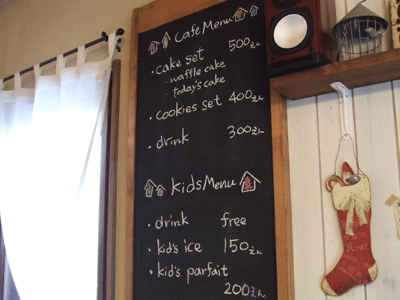 Cafe Menu
・cake set 500えん
・waffle cake
・today's cake
・cookies set 400えん
・drink 300えん
kids Menu
・drink free
・kid's ice 150えん
・kid's parfait
200えん